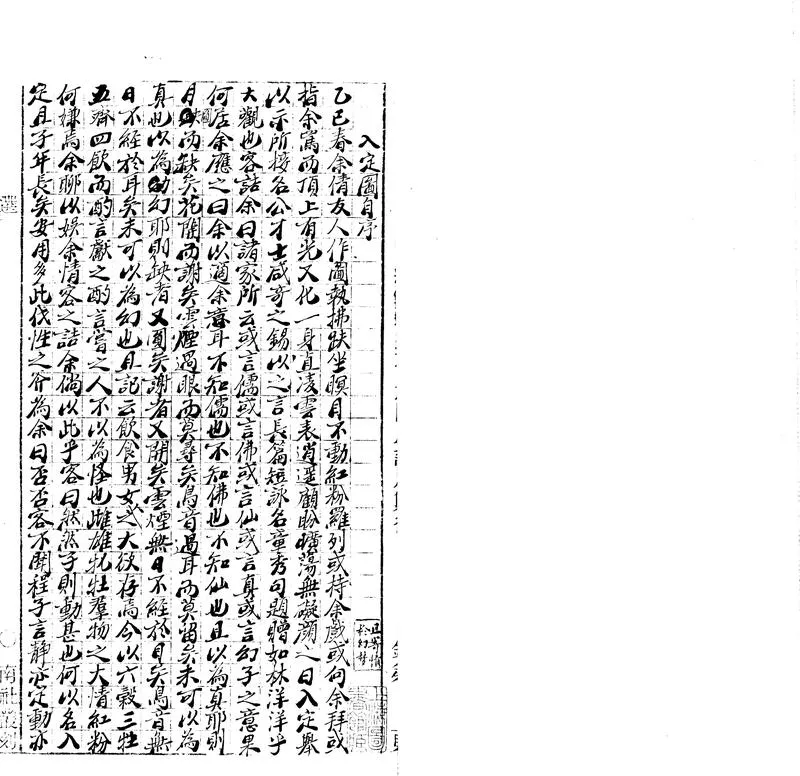 入定圖自序
乙巳春余倩友人作圖執拂趺坐暝目不動紅粉羅列或持余戲或向余拜或
指余罵而頂上有光又化一身直凌雲表逍遥顧盼曠蕩無礙顏之曰入定舉
以示所接名公才士咸奇之錫以之言長篇短詠名章秀句題贈如林洋洋乎
大觀也客詰余曰諸家所云或言儒或言佛或言仙或言真或言幻子之意果
何居余應之曰余以適余意耳不知儒也不知佛也不知仙也且以為真耶則
月圓而缺矣花開而謝矣雲煙過眼而莫尋矣鳥音過耳而莫留矣未可以為
真也以為幻耶則缺者又圓矣謝者又開矣雲煙無日不經於目矣鳥音無
日不經於耳矣未可以為幻也且記云飲食男女之大欲存焉今以六穀三牲
五齊四飲而酌言獻之酌言嘗之人不以為怪也雌雄牝牡羣物之大情紅粉
何嫌焉余聊以娛余情客之詰余倘以此乎客曰然然子則動甚也何以名入
定且子年長矣安用多此伐性之斧為余曰否否客不聞程子言靜亦定動亦
且寄情
於幻梦
選
南社叢刻